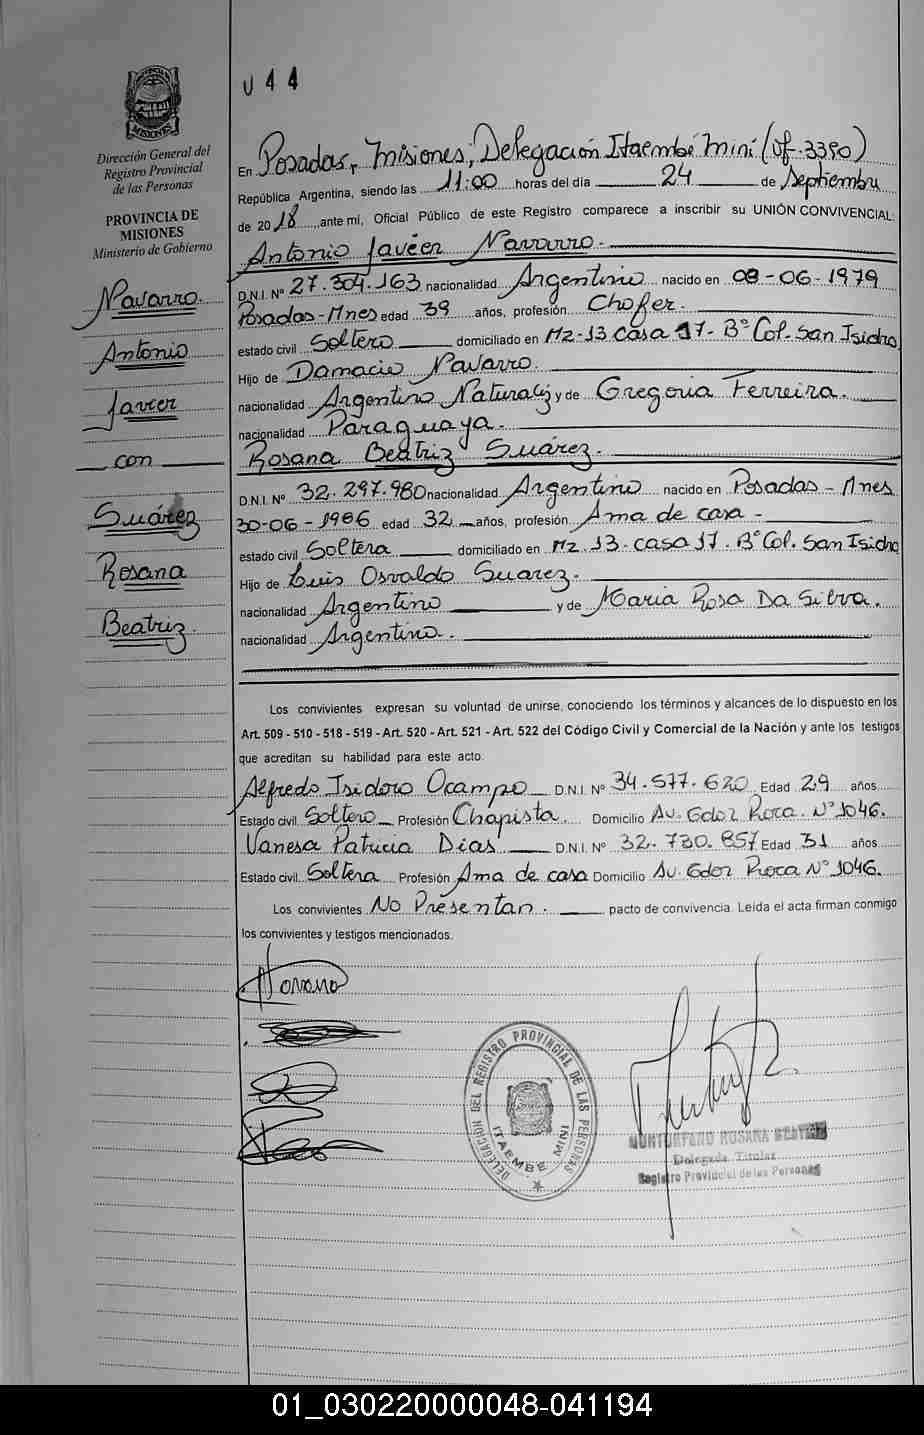 044
MISIONES
Dirección General del
Registro Provincial
de las Personas
PROVINCIA DE
MISIONES
Ministerio de Gobierno
Navarro.
Antonio
Javier
con
Suárez
Rosana
Beatriz.
En Posadas, Misiones; Delegación Itaembé Miní (of. 3390)
República Argentina, siendo las 11:00 horas del día 24 de Septiembre
de 2018, ante mí, Oficial Público de este Registro comparece a inscribir su UNIÓN CONVIVENCIAL:
Antonio Javier Navarro.
D.N.I. Nº 27.304.163 nacionalidad Argentino nacido en 09-06-1979
Posadas-Mnes edad 39 años, profesión Chofer.
estado civil Soltero domiciliado en Mz-13 casa 17. Bº Col. San Isidro
Hijo de Damacio Navarro.
nacionalidad Argentino Naturaliz y de Gregoria Ferreira.
nacionalidad Paraguaya.
Rosana Beatriz Suárez.
D.N.I. Nº 32.297.980 nacionalidad Argentino nacido en Posadas - Mnes
30-06-1986 edad 32 años, profesión Ama de casa -
estado civil Soltera domiciliado en Mz. 13- casa 17. Bº Col. San Isidro
Hijo de Luis Osvaldo Suarez.
nacionalidad Argentino y de Maria Rosa Da Silva.
nacionalidad Argentina.
Los convivientes expresan su voluntad de unirse, conociendo los términos y alcances de lo dispuesto en los
Art. 509 - 510 - 518 - 519 - Art. 520 - Art. 521 - Art. 522 del Código Civil y Comercial de la Nación y ante los testigos
que acreditan su habilidad para este acto.
Alfredo Isidoro Ocampo D.N.I. Nº 34.577.620 Edad 29 años
Estado civil Soltero Profesión Chapista. Domicilio Av. Gdor Roca. Nº 1046.
Vanesa Patricia Dias D.N.I. Nº 32.730.857 Edad 31 años
Estado civil Soltera Profesión Ama de casa Domicilio Av. Gdor Roca Nº 1046.
Los convivientes No Presentan. pacto de convivencia. Leída el acta firman conmigo
los convivientes y testigos mencionados.
Navarro
DELEGACION DEL REGISTRO PROVINCIAL DE LAS PERSONAS
ITAEMBE MINI
ROSANA BEATRIZ
Delegada Titular
Registro Provincial de las Personas
01_030220000048-041194